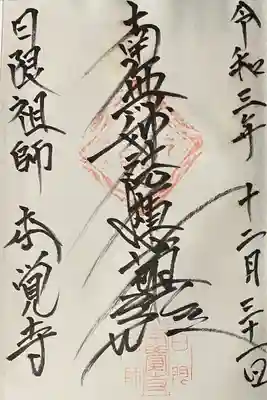 令和三年 十二月三十一日
南無妙法蓮華経
日限祖師 本覚寺